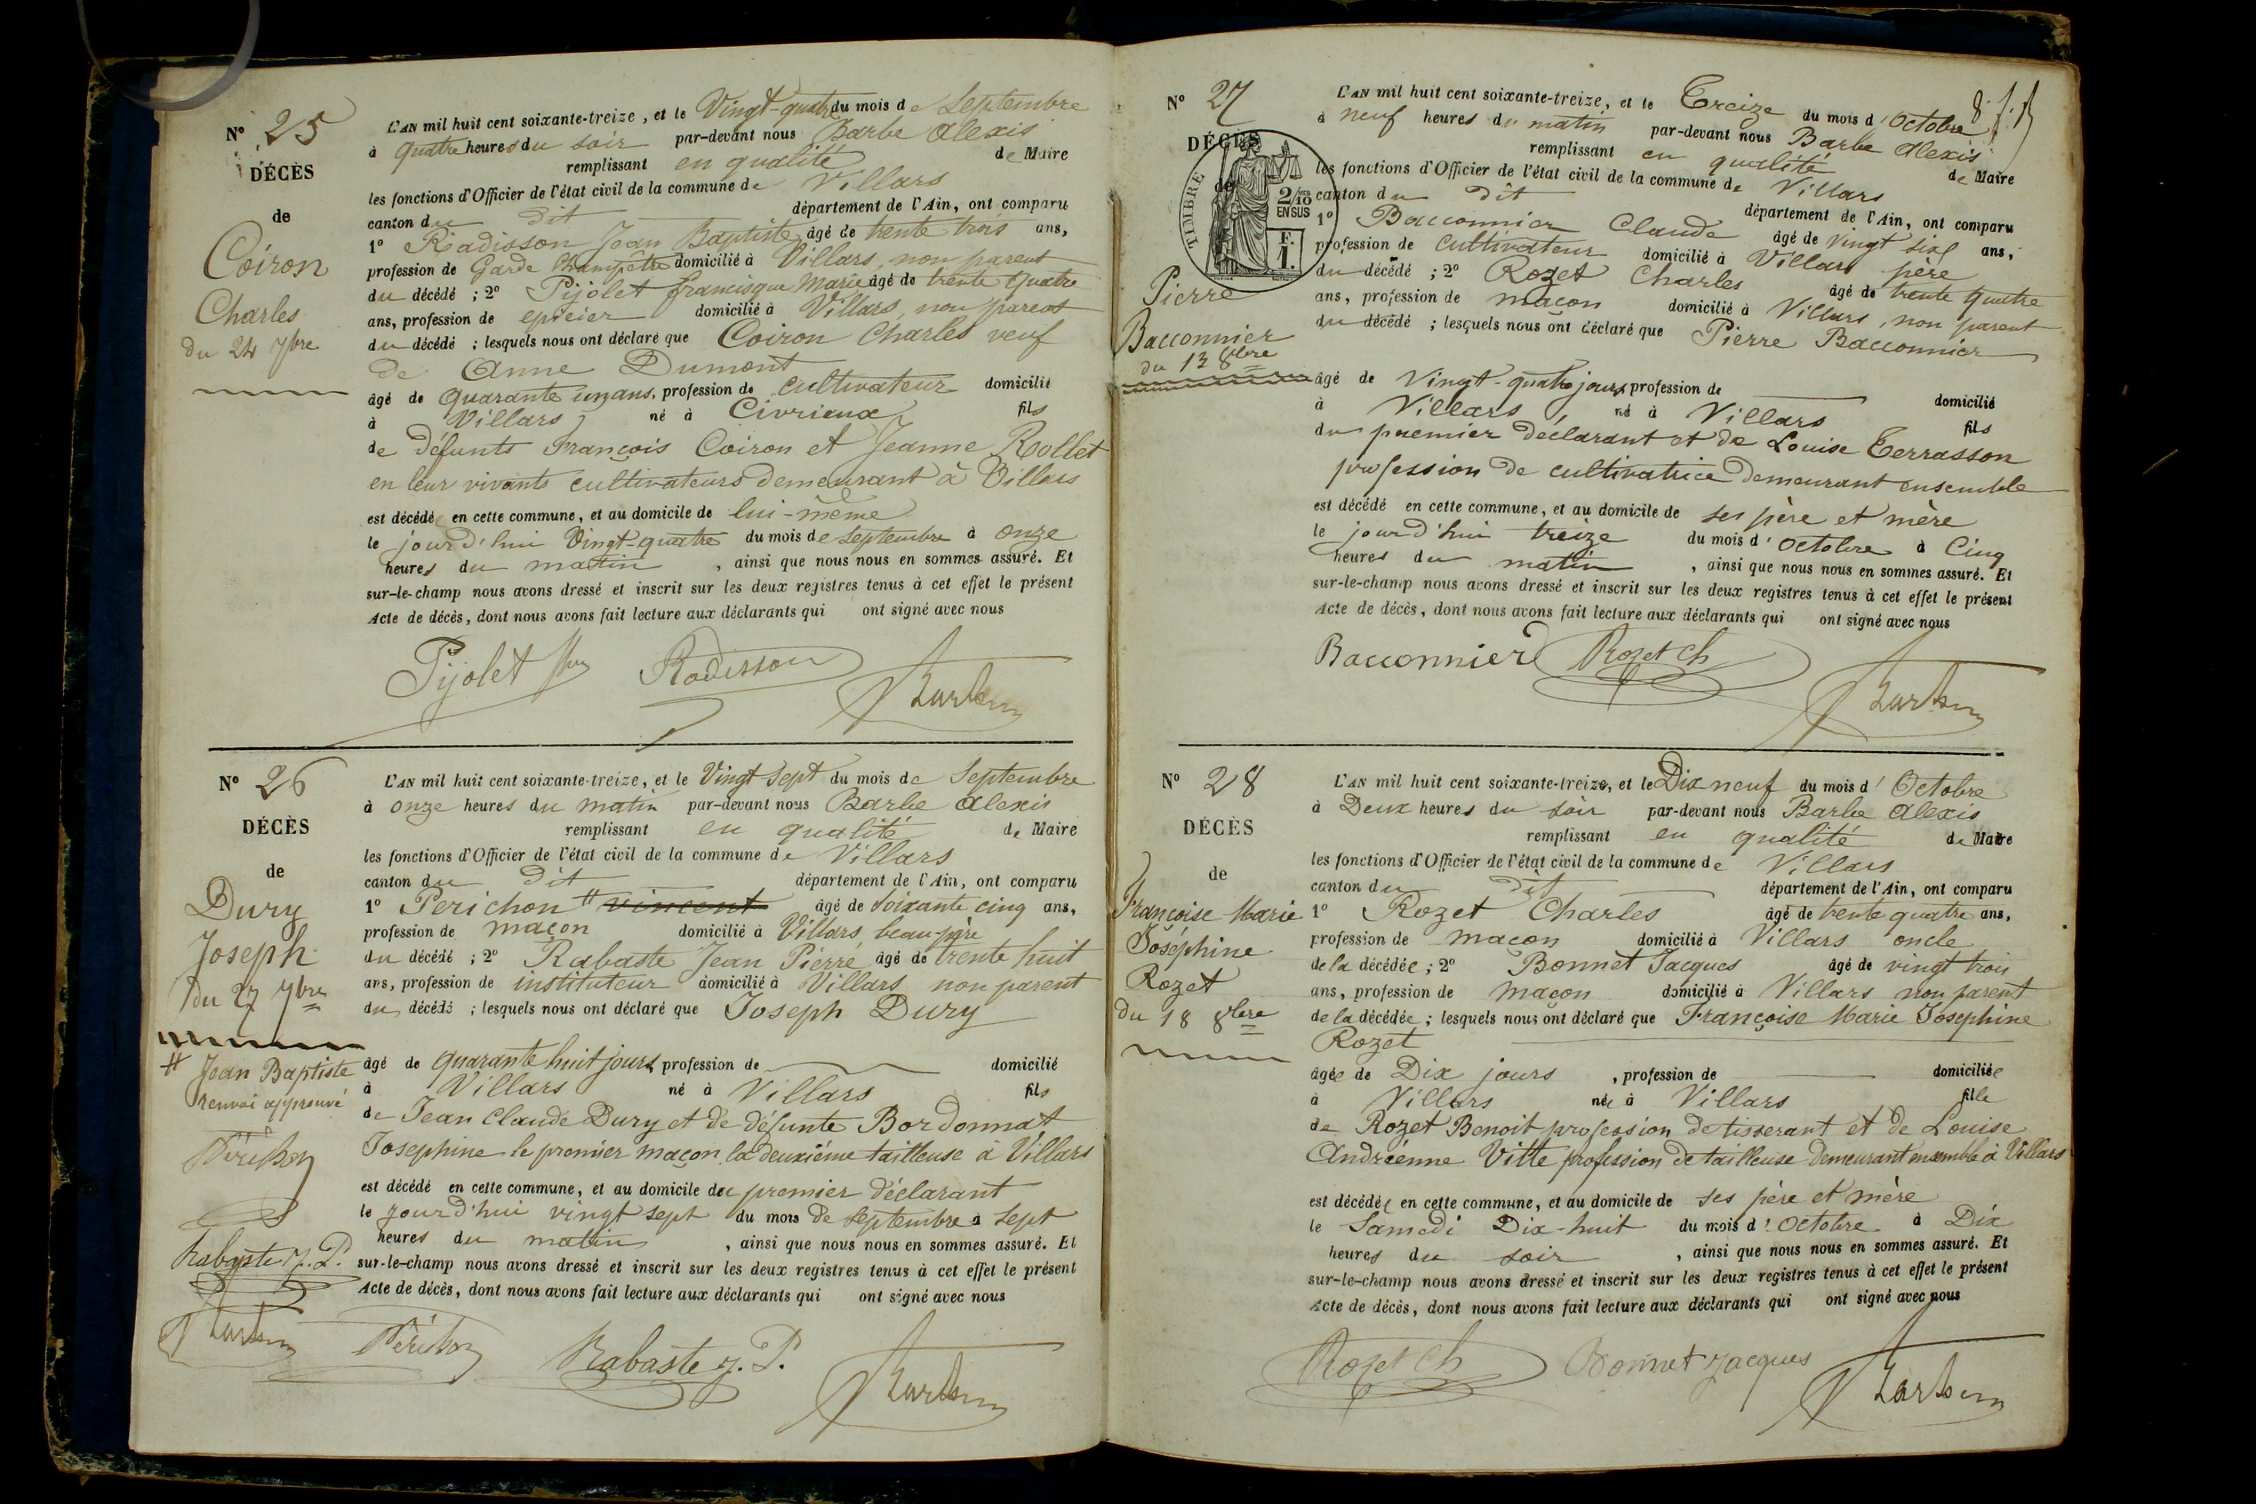 N° 25
DÉCÈS
de
Coiron
Charles
du 24 7bre
L'AN mil huit cent soixante-treize, et le Vingt-quatre du mois de Septembre
à quatre heures du soir par-devant nous Barbe Alexis
remplissant en qualité de Maire
les fonctions d'Officier de l'état civil de la commune de Villars
canton du dit département de l'Ain, ont comparu
1° Radisson Jean Baptiste âgé de trente trois ans,
profession de Garde Champêtre domicilié à Villars, non parent
du décédé ; 2° Pijolet francisque Marie âgé de trente quatre
ans, profession de epicier domicilié à Villars, non parent
du décédé ; lesquels nous ont déclaré que Coiron Charles veuf
de Anne Dumont
âgé de quarante un ans, profession de cultivateur domicilié
à Villars né à Civrieux fils
de défunts François Coiron et Jeanne Rollet
en leur vivants cultivateurs demeurant à Villars
est décédé en cette commune, et au domicile de lui-même
le jourd'hui Vingt-quatre du mois de Septembre à onze
heures du matin, ainsi que nous nous en sommes assuré. Et
sur-le-champ nous avons dressé et inscrit sur les deux registres tenus à cet effet le présent
Acte de décès, dont nous avons fait lecture aux déclarants qui ont signé avec nous
Pijolet Radisson Barbe
N° 26
DÉCÈS
de
Dury
Joseph
du 27 7bre
# Jean Baptiste
renvoi approuvé
Périchon
Rabaste J. P.
Barbe
L'AN mil huit cent soixante-treize, et le Vingt Sept du mois de Septembre
à onze heures du matin par-devant nous Barbe Alexis
remplissant en qualité de Maire
les fonctions d'Officier de l'état civil de la commune de Villars
canton du dit département de l'Ain, ont comparu
1° Perichon # vincent âgé de Soixante cinq ans,
profession de maçon domicilié à Villars beau-père
du décédé ; 2° Rabaste Jean Pierre âgé de trente huit
ans, profession de instituteur domicilié à Villars non parent
du décédé ; lesquels nous ont déclaré que Joseph Dury
âgé de quarante huit jours profession de domicilié
à Villars né à Villars fils
de Jean Claude Dury et de défunte Bordonnat
Josephine le premier maçon la deuxième tailleuse à Villars
est décédé en cette commune, et au domicile du premier déclarant
le jourd'hui vingt sept du mois de Septembre à sept
heures du matin, ainsi que nous nous en sommes assuré. Et
sur-le-champ nous avons dressé et inscrit sur les deux registres tenus à cet effet le présent
Acte de décès, dont nous avons fait lecture aux déclarants qui ont signé avec nous
Périchon Rabaste J. P. Barbe
N° 27
DÉCÈS
de
TIMBRE
2/10
EN SUS
F.
1.
Pierre
Bacconnier
du 13 8bre
L'AN mil huit cent soixante-treize, et le Treize du mois d'Octobre
à neuf heures du matin par-devant nous Barbe Alexis
remplissant en qualité de Maire
les fonctions d'Officier de l'état civil de la commune de Villars
canton du dit département de l'Ain, ont comparu
1° Bacconnier Claude âgé de vingt six ans,
profession de cultivateur domicilié à Villars père
du décédé ; 2° Rozet Charles âgé de trente quatre
ans, profession de maçon domicilié à Villars, non parent
du décédé ; lesquels nous ont déclaré que Pierre Bacconnier
âgé de Vingt-quatre jours, profession de domicilié
à Villars, né à Villars fils
du premier déclarant et de Louise Terrasson
profession de cultivatrice demeurant ensemble
est décédé en cette commune, et au domicile de ses père et mère
le jourd'hui treize du mois d'octobre à Cinq
heures du matin, ainsi que nous nous en sommes assuré. Et
sur-le-champ nous avons dressé et inscrit sur les deux registres tenus à cet effet le présent
Acte de décès, dont nous avons fait lecture aux déclarants qui ont signé avec nous
Bacconnier Rozet Ch Barbe
N° 28
DÉCÈS
de
Françoise Marie
Joséphine
Rozet
du 18 8bre
L'AN mil huit cent soixante-treize, et le Dix neuf du mois d'Octobre
à Deux heures du soir par-devant nous Barbe Alexis
remplissant en qualité de Maire
les fonctions d'Officier de l'état civil de la commune de Villars
canton du dit département de l'Ain, ont comparu
1° Rozet Charles âgé de trente quatre ans,
profession de maçon domicilié à Villars oncle
de la décédée ; 2° Bonnet Jacques âgé de vingt trois
ans, profession de maçon domicilié à Villars non parent
de la décédée ; lesquels nous ont déclaré que Françoise Marie Josephine
Rozet
âgée de Dix jours, profession de domiciliée
à Villars née à Villars fille
de Rozet Benoit profession de tisserant et de Louise
Andréenne Vitte profession de tailleuse demeurant ensemble à Villars
est décédée en cette commune, et au domicile de ses père et mère
le Samedi Dix-huit du mois d'Octobre à Dix
heures du soir, ainsi que nous nous en sommes assuré. Et
sur-le-champ nous avons dressé et inscrit sur les deux registres tenus à cet effet le présent
Acte de décès, dont nous avons fait lecture aux déclarants qui ont signé avec nous
Rozet Ch Bonnet Jacques Barbe